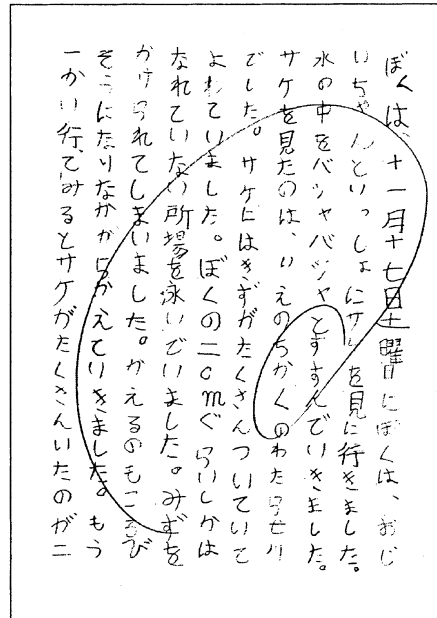 ぼくは、十一月十七日土曜日にぼくは、おじ
いちゃんといっしょにサケを見に行きました。
水の中をバシャバシャとすすんでいきました。
サケを見たのは、いえのちかくのわたらせ川
でした。サケにはきずがたくさんついていて
よわっていました。ぼくの二〇mぐらいしかは
なれていない所場を泳いでいました。みずを
かけられてしまいました。かえるのもころび
そうになりながらかえていきました。もう
一かい行てみるとサケがたくさんいたのが二